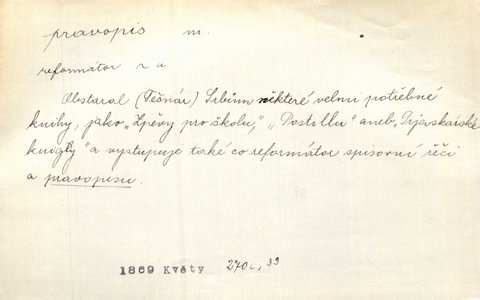 pravopis m.
reformátor r u
Obstaral (Tešnár) Srbům některé velmi potřebné
knihy, jako „Zpěvy pro školu," „Postillu" aneb
knigły" a vystupuje také co reformátor spisovní řeči
a pravopisu.
1869 Květy 270c, 33